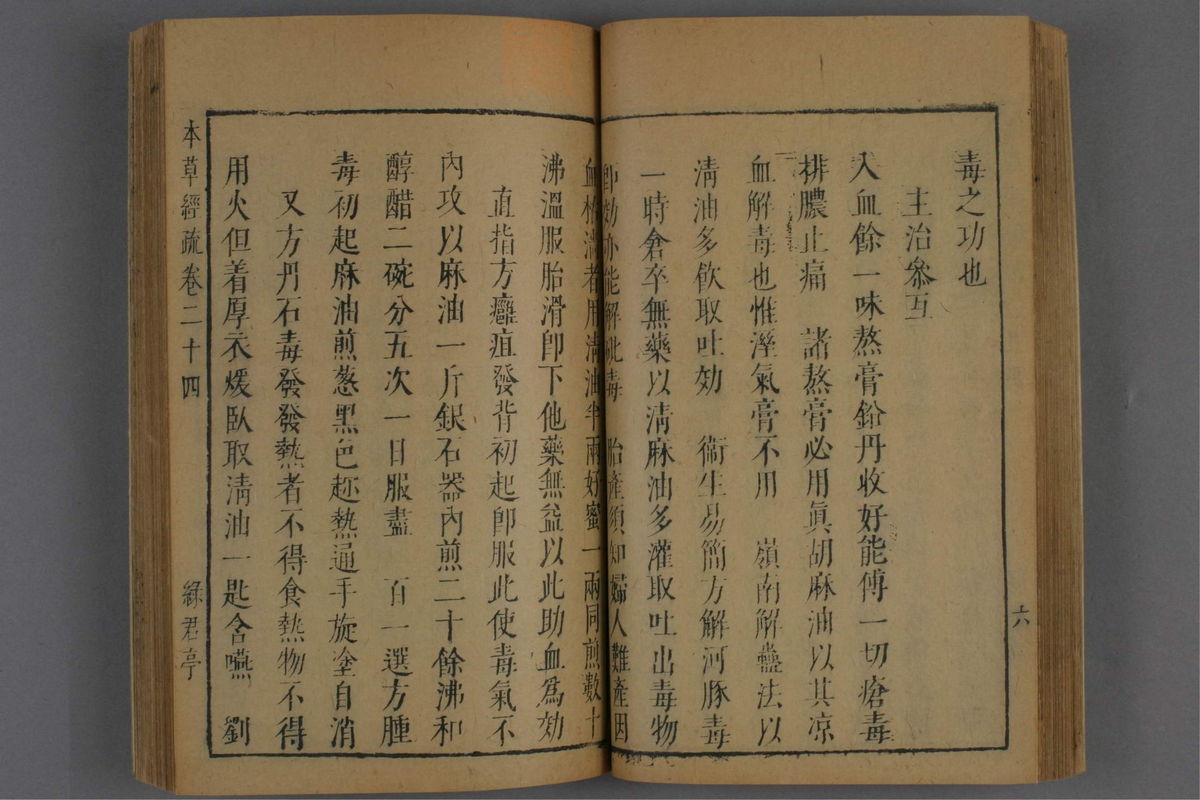 毒之功也
主治參互
入血餘一味熬膏鉛丹收好能傅一切瘡毒
排膿止痛　諸熬膏必用眞胡麻油以其凉
血解毒也惟溼氣膏不用　嶺南解蠱法以
淸油多飮取吐効　衞生易簡方解河豚毒
一時倉卒無藥以淸麻油多灌取吐出毒物
卽効亦能解砒毒　胎產須知婦人難產因
血枯澁者用淸油半兩好蜜一兩同煎數十
沸溫服胎滑卽下他藥無益以此助血爲効
直指方癰疽發背初起卽服此使毒氣不
內攻以麻油一斤銀石器內煎二十餘沸和
醇醋二碗分五次一日服盡　百一選方腫
毒初起麻油煎葱黑色趂熱通手旋塗自消
又方丹石毒發發熱者不得食熱物不得
用火但着厚衣煖臥取淸油一匙含嚥　劉
本草經疏卷二十四
綠君亭
六